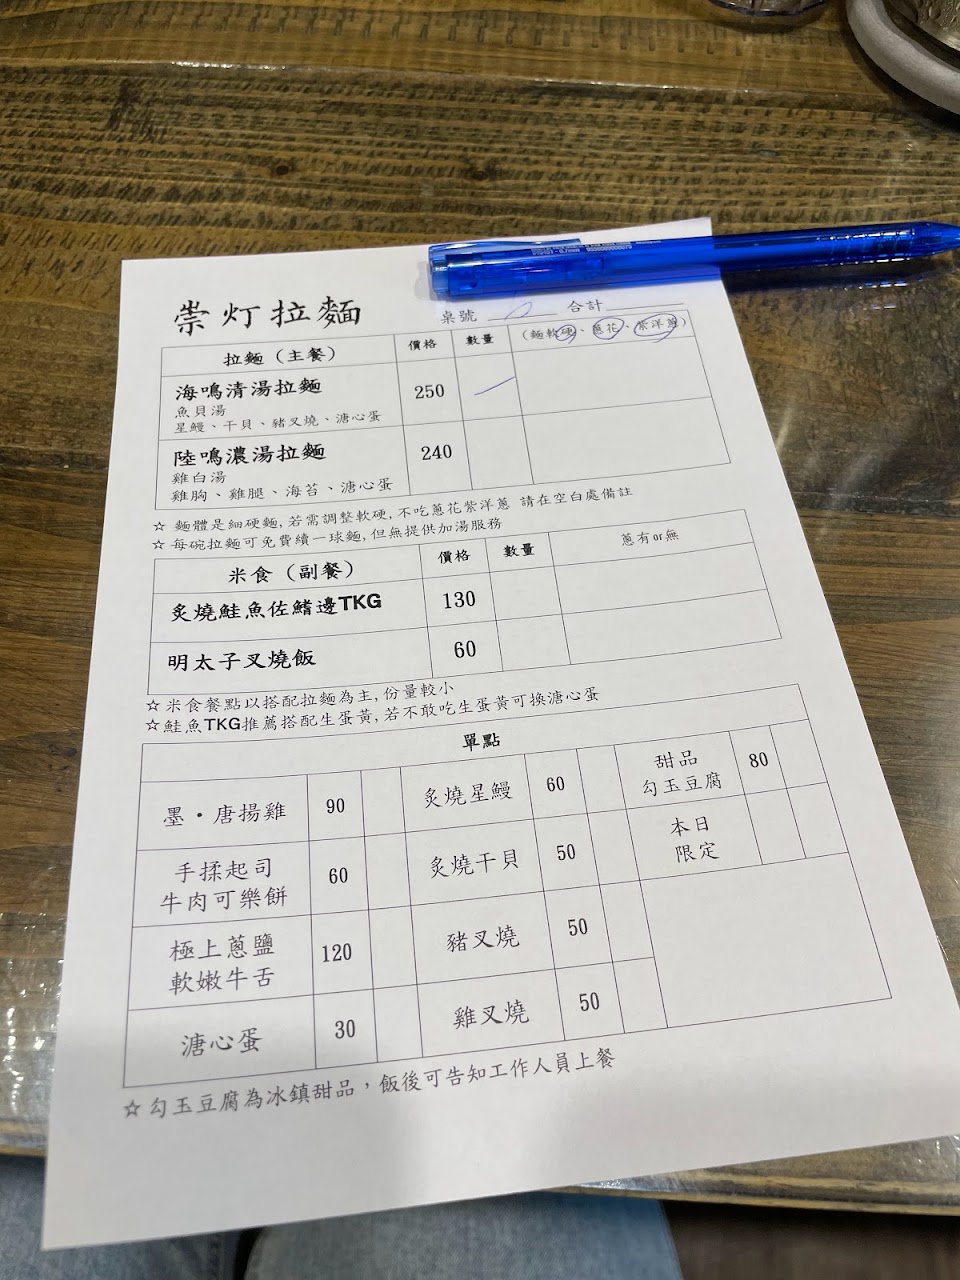 崇灯拉麵
桌號 合計
拉麵（主餐） 價格 數量 （麵軟硬、蔥花、紫洋蔥）
海鳴清湯拉麵 250
魚貝湯
星鰻、干貝、豬叉燒、溏心蛋
陸鳴濃湯拉麵 240
雞白湯
雞胸、雞腿、海苔、溏心蛋
☆ 麵體是細硬麵,若需調整軟硬,不吃蔥花紫洋蔥 請在空白處備註
☆ 每碗拉麵可免費續一球麵,但無提供加湯服務
米食（副餐） 價格 數量 蔥有or無
炙燒鮭魚佐鰭邊TKG 130
明太子叉燒飯 60
☆ 米食餐點以搭配拉麵為主,份量較小
☆鮭魚TKG推薦搭配生蛋黃,若不敢吃生蛋黃可換溏心蛋
單點
墨・唐揚雞 90
炙燒星鰻 60
甜品
勾玉豆腐 80
手揉起司
牛肉可樂餅 60
炙燒干貝 50
本日
限定
極上蔥鹽
軟嫩牛舌 120
豬叉燒 50
溏心蛋 30
雞叉燒 50
☆ 勾玉豆腐為冰鎮甜品，飯後可告知工作人員上餐